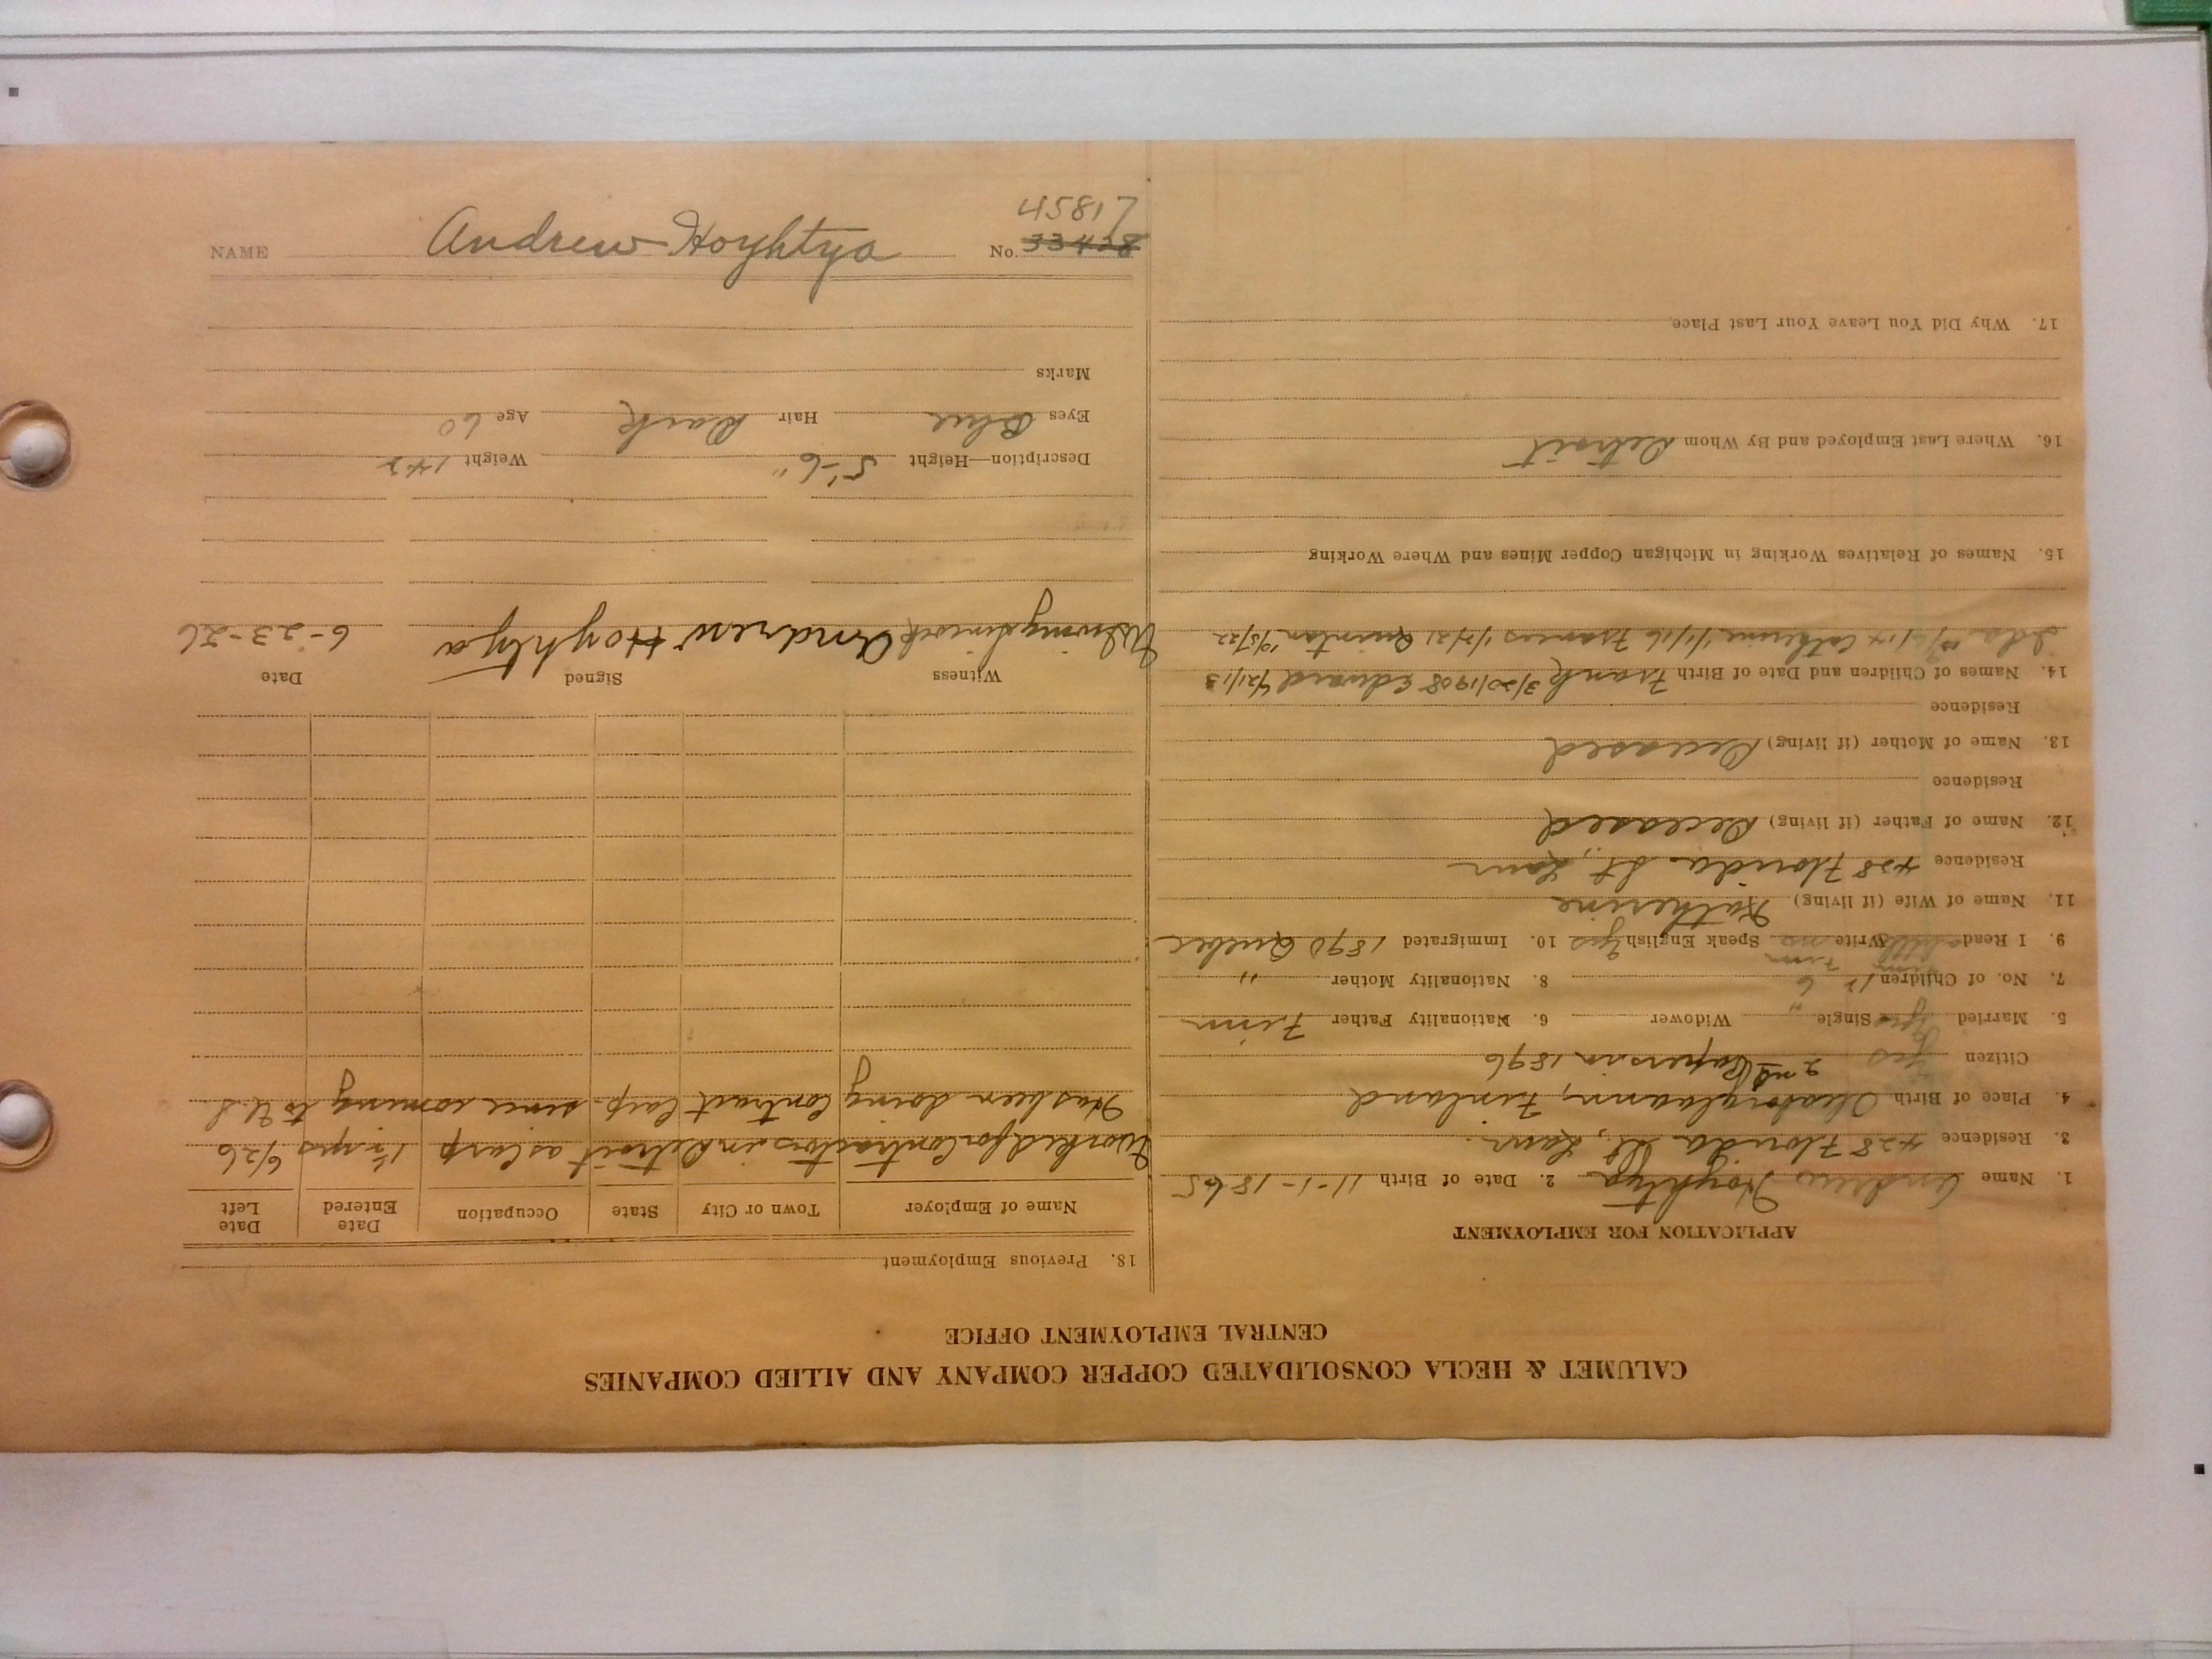 CALUMET & HECLA CONSOLIDATED COPPER COMPANY AND ALLIED COMPANIES
CENTRAL EMPLOYMENT OFFICE
APPLICATION FOR EMPLOYMENT
1. Name Andrew Hoyhtya 2. Date of Birth 11-1-1865
3. Residence 428 Florida St., Laur.
4. Place of Birth Finland
Citizen Yes 2nd Papers in 1896
5. Married Yes Single " Widower 6. Nationality Father Finn
7. No. of Children 12 6 8. Nationality Mother "
Finn Finn
9. I Read little Write no Speak English yes 10. Immigrated 1890 Quebec
11. Name of Wife (if living) Katherine
Residence 428 Florida St., Laur
12. Name of Father (if living) Deceased
Residence
13. Name of Mother (if living) Deceased
Residence
14. Names of Children and Date of Birth Frank 3/20/1908 Edward 4/21/13
Ida Catherine 1/1/16 Frances 1/2/21 Quintan 10/5/22
15. Names of Relatives Working in Michigan Copper Mines and Where Working
16. Where Last Employed and By Whom Detroit
17. Why Did You Leave Your Last Place
18. Previous Employment
Name of Employer Town or City State Occupation Date Entered Date Left
Worked for Contractors in Detroit as Carp 1½ yrs 6/26
Has been doing Contract Carp. since coming to U.S.
Witness Signed Date
Andrew Hoyhtya 6-23-26
Description—Height 5'-6" Weight 142
Eyes Blue Hair Dark Age 60
Marks
45817
NAME Andrew Hoyhtya No. 33428